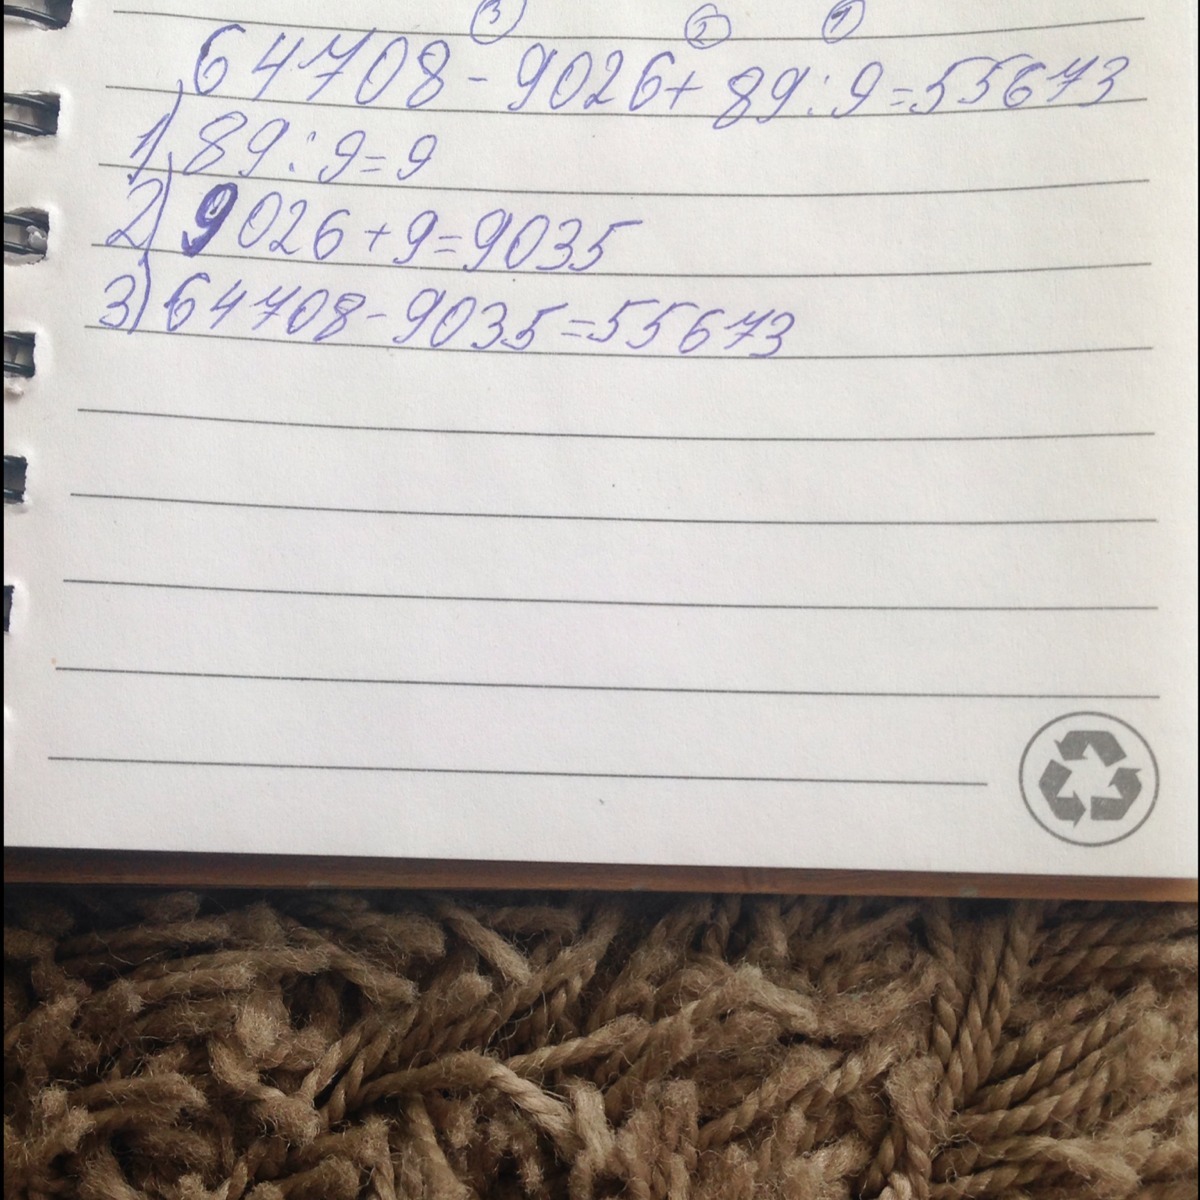 3 2 1
64708-9026+89:9=55673
1) 89:9=9
2) 9026+9=9035
3) 64708-9035=55673